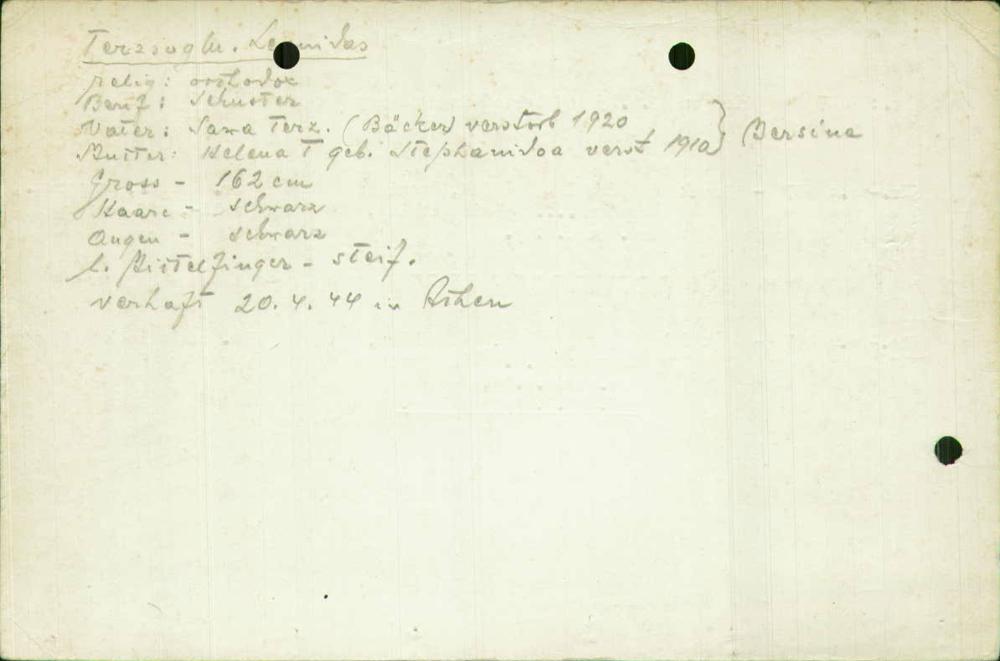 Terzsoglu. Leonidas
relig: orthodox
Beruf: Schuster
Vater: Sawa Terz. (Bäcker) verstorb 1920
Mutter: Helena T geb. Stephanidoa verst 1910 } Bersina
Gross - 162 cm
Haare - schwarz
Augen - schwarz
l. Mittelfinger - steif.
verhaft 20.4.44 in Athen